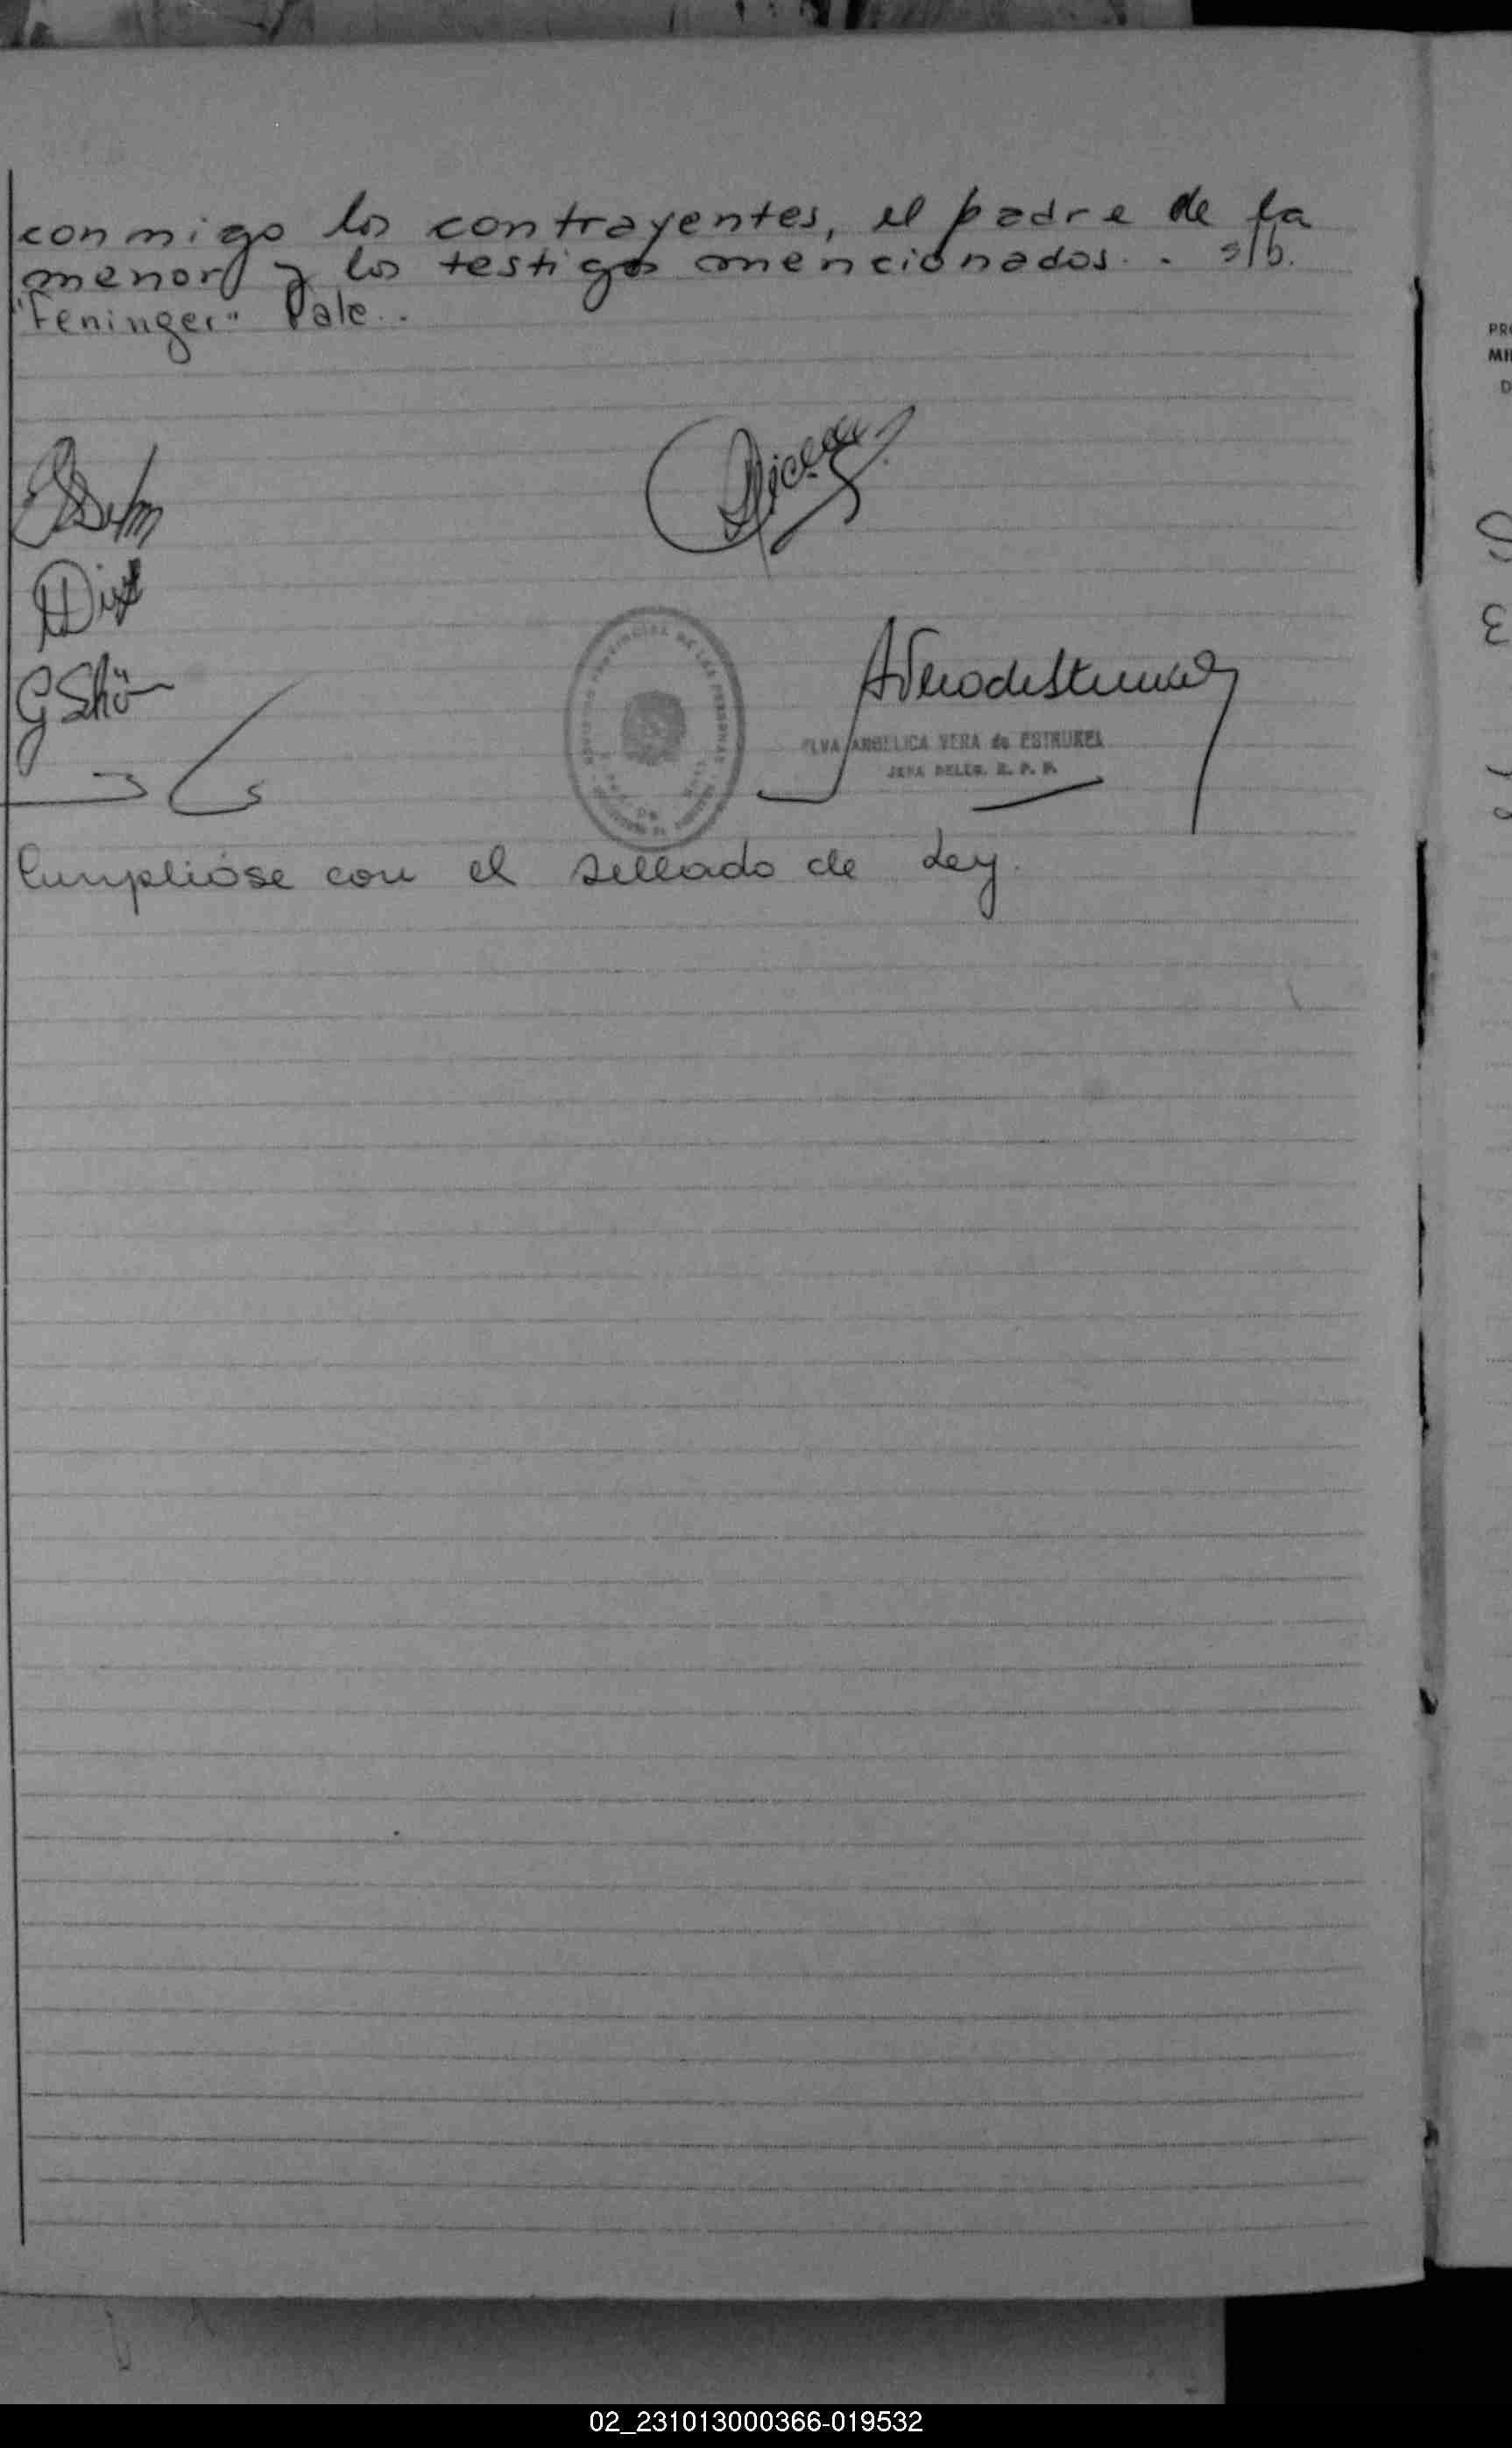 conmigo los contrayentes, el padre de la
menor y los testigos mencionados. - s/b.
"Feninger" Vale. -
G Schö
ELVA ANGELICA VERA de ESTRUBEL
JEFA DELEG. R. P. P.
Cumplióse con el sellado de Ley.
PR
MI
D
02_231013000366-019532